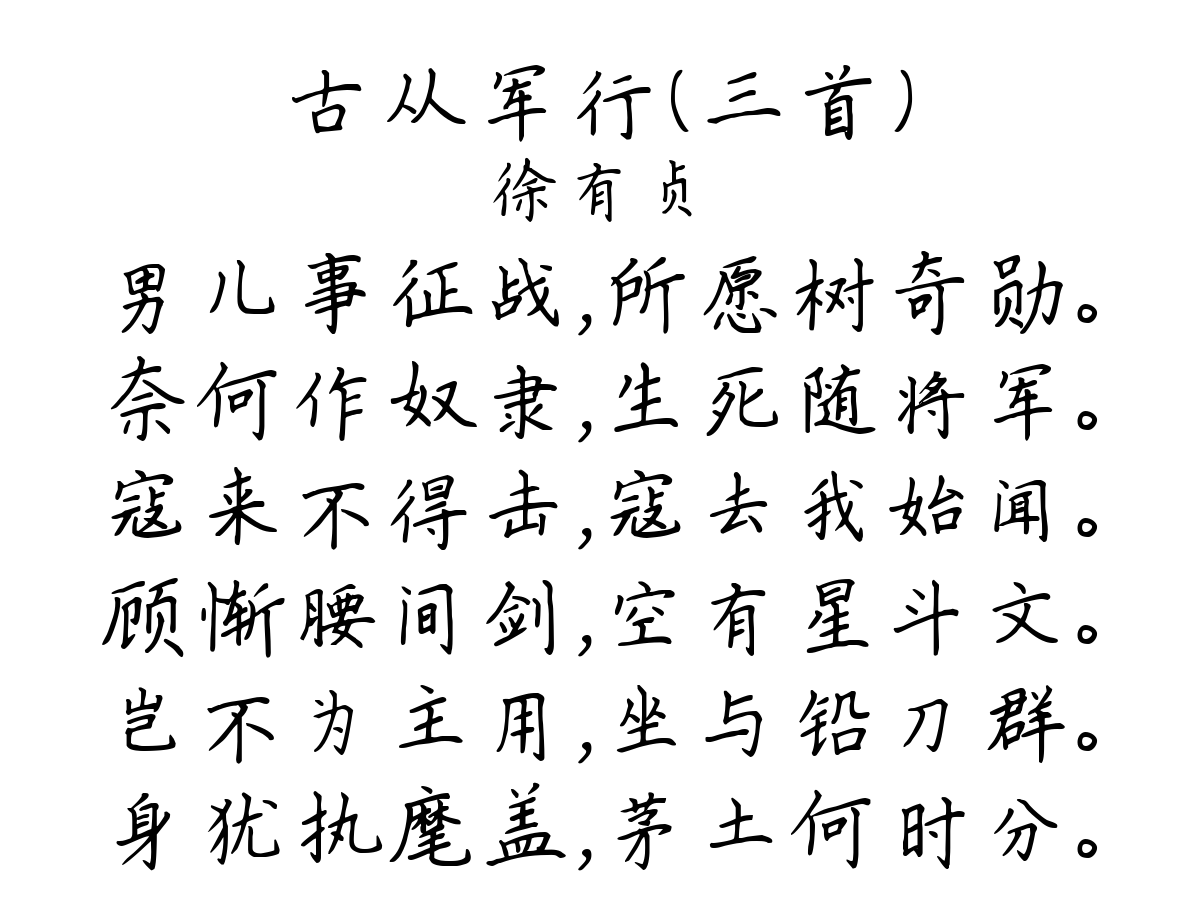 古从军行(三首)
徐有贞
男儿事征战,所愿树奇勋。
奈何作奴隶,生死随将军。
寇来不得击,寇去我始闻。
顾惭腰间剑,空有星斗文。
岂不为主用,坐与铅刀群。
身犹执麾盖,茅土何时分。